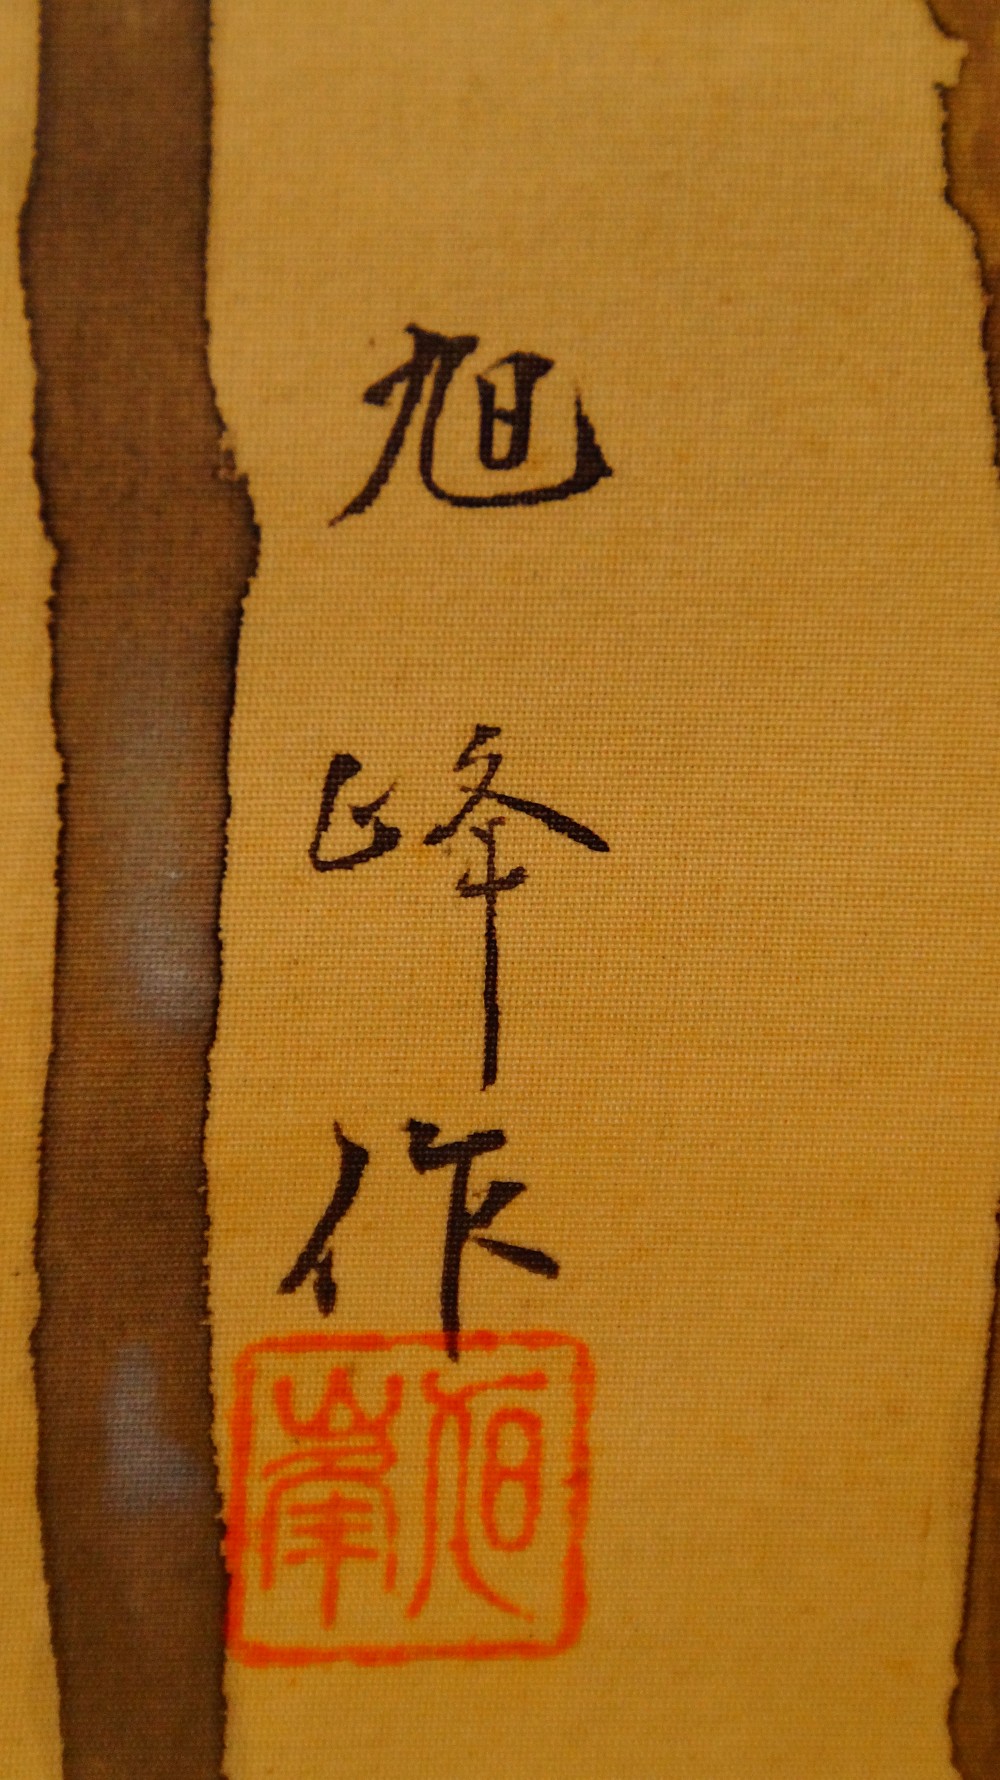 旭峰作
旭峯